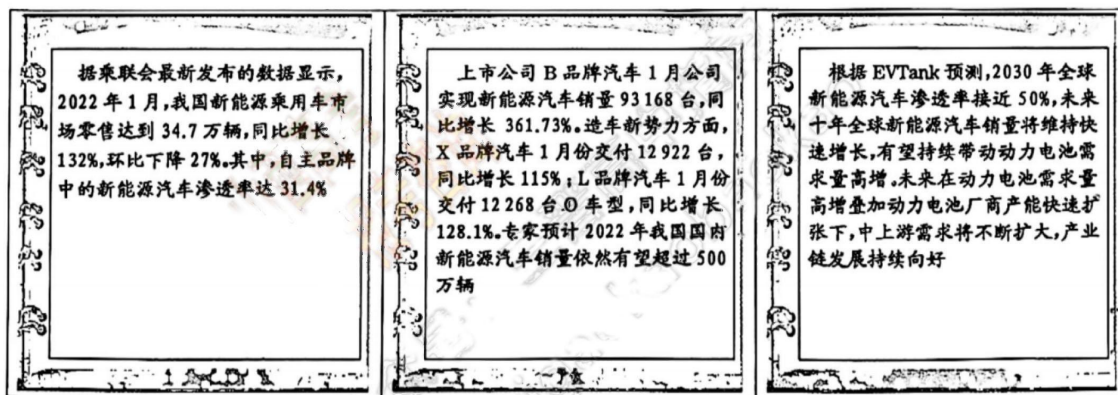 据乘联会最新发布的数据显示，
2022年1月，我国新能源乘用车市
场零售达到34.7万辆，同比增长
132%，环比下降27%。其中，自主品牌
中的新能源汽车渗透率达31.4%
上市公司B品牌汽车1月公司
实现新能源汽车销量93168台，同
比增长361.73%。造车新势力方面，
X品牌汽车1月份交付12922台，
同比增长115%；L品牌汽车1月份
交付12268台O车型，同比增长
128.1%。专家预计2022年我国国内
新能源汽车销量依然有望超过500
万辆
根据EVTank预测，2030年全球
新能源汽车渗透率接近50%，未来
十年全球新能源汽车销量将维持快
速增长，有望持续带动动力电池需
求量高增。未来在动力电池需求量
高增叠加动力电池厂商产能快速扩
张下，中上游需求将不断扩大，产业
链发展持续向好